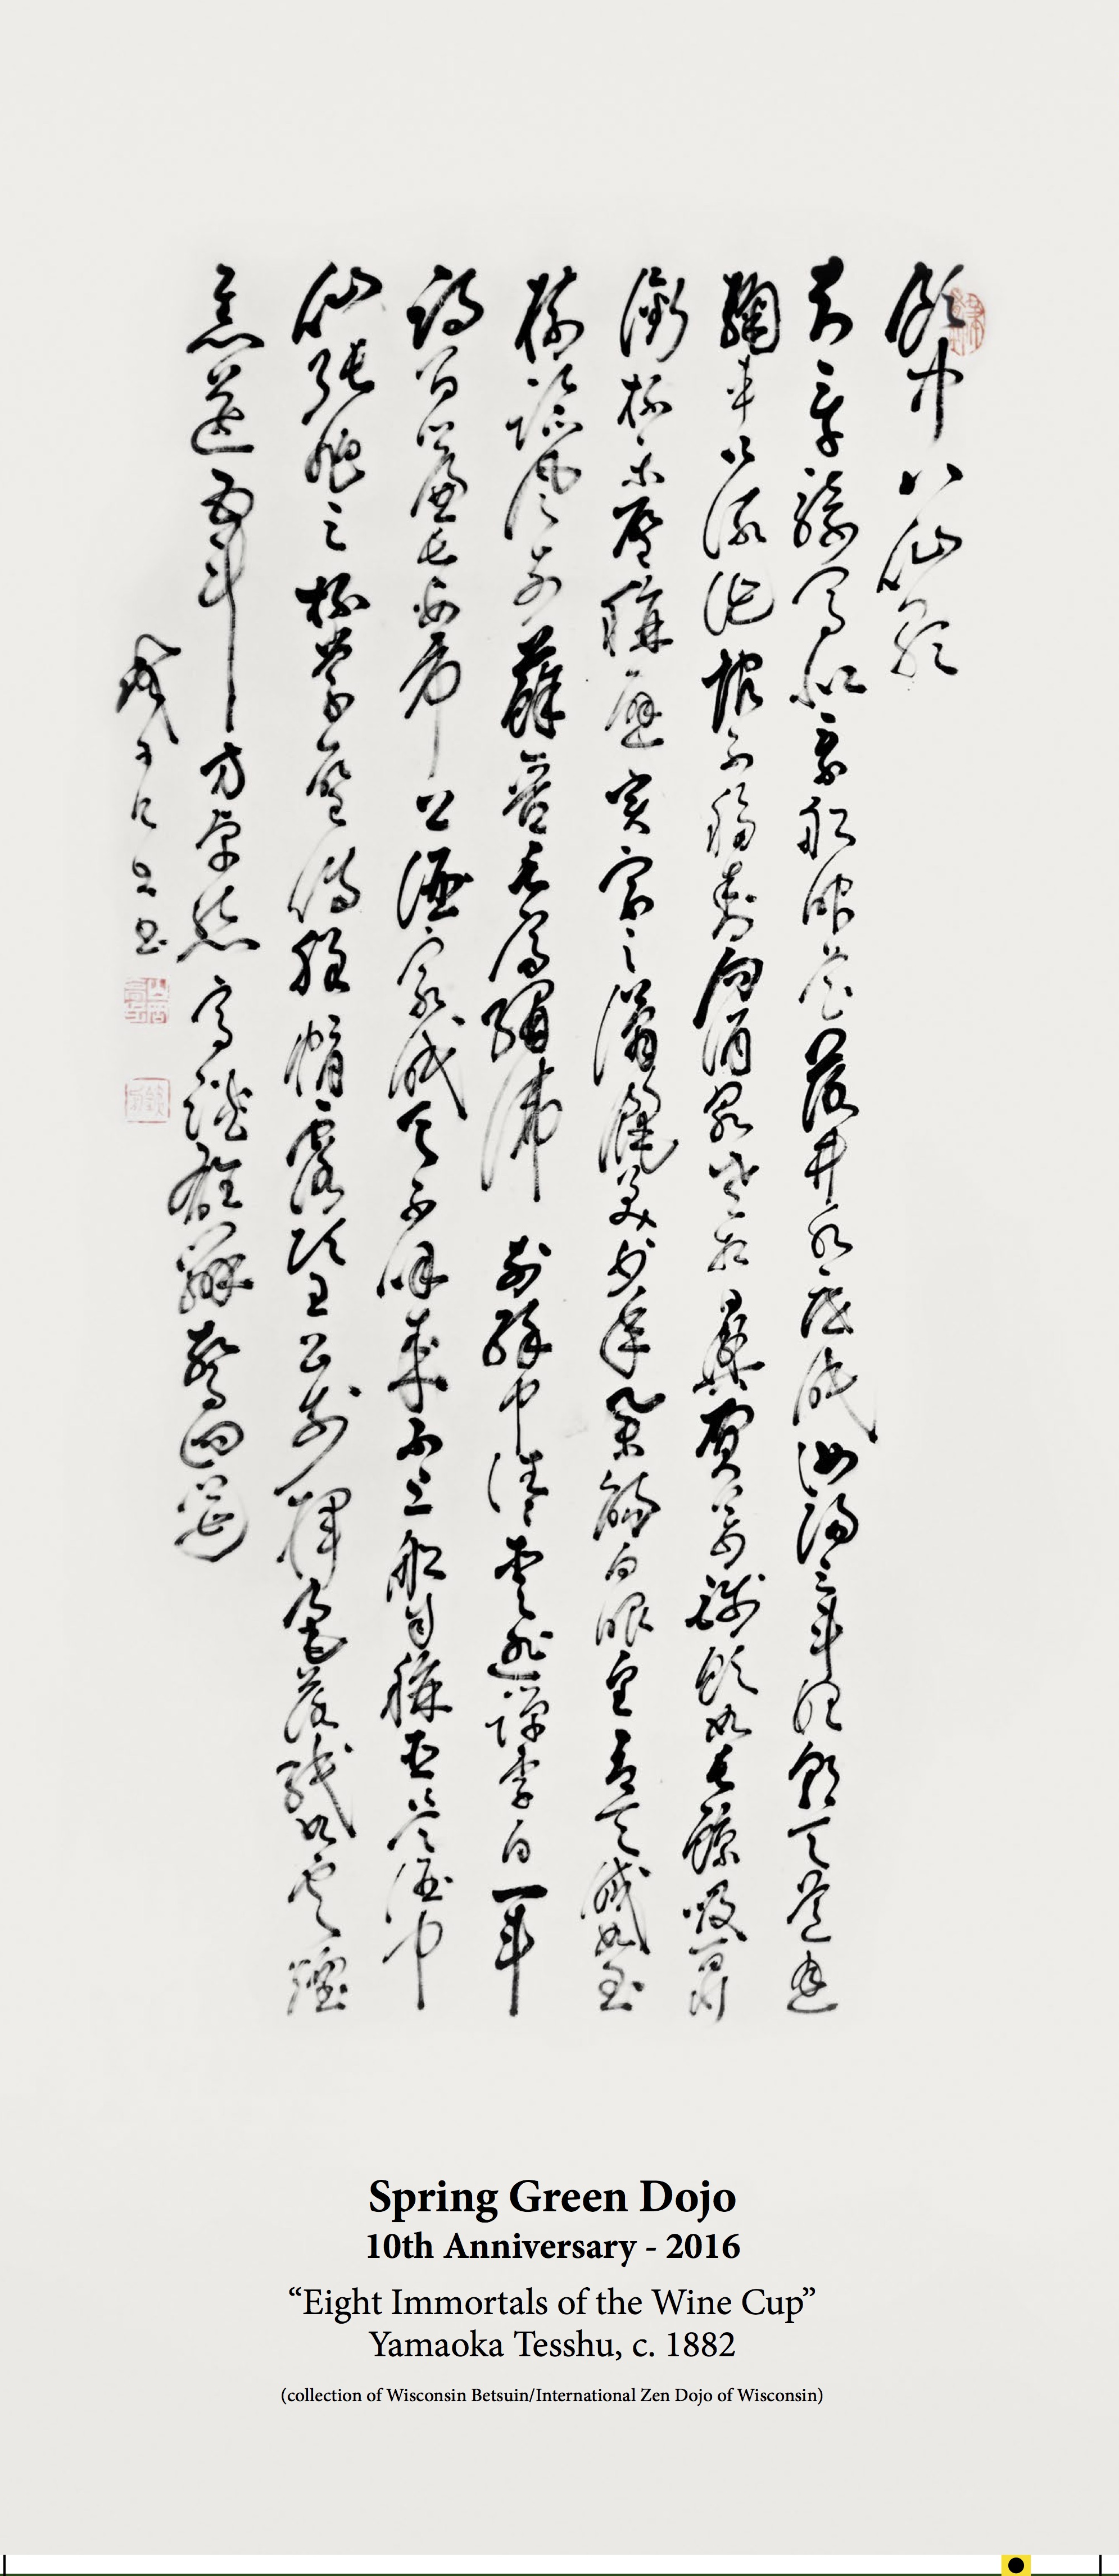 飲中八仙歌
知章騎馬似乘船眼花落井水底眠汝陽三斗始朝天道逢
麴車口流涎恨不移封向酒泉左相日興費萬錢飲如長鯨吸百川
銜杯樂聖稱避賢宗之瀟灑美少年舉觴白眼望青天皎如玉
樹臨風前蘇晉長齋繡佛前醉中往々愛逃禪李白一斗
詩百篇長安市上酒家眠天子呼来不上船自稱臣是酒中
仙張旭三杯草聖傳脱帽露頂王公前揮毫落紙如雲煙
焦遂五斗方卓然高談雄辯驚四筵
Spring Green Dojo
10th Anniversary - 2016
“Eight Immortals of the Wine Cup”
Yamaoka Tesshu, c. 1882
(collection of Wisconsin Betsuin/International Zen Dojo of Wisconsin)